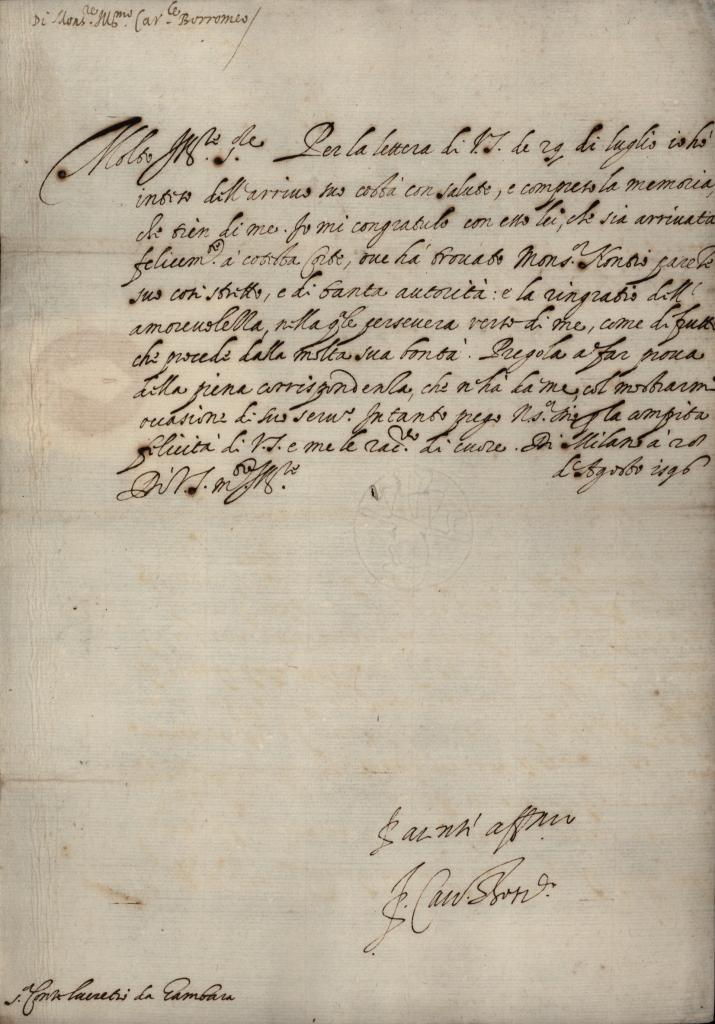 Di Mons.re Ill.mo Car.le Borromeo
Molto Ill.re S.re Per la lettera di V.S. de 29 di luglio io hò
inteso dell'arrivo suo costà con salute, e compreso la memoria,
che tien di me. Io mi congratulo con esso lei, che sia arrivata
felicem.te à cotesta Corte, ove hà trovato Mons.r Nontio parente
suo così stretto, e di tanta autorità: e la ringratio dell'
amorevolezza, nella q.le persevera verso di me, come di frutto
che procede dalla molta sua bontà. Pregola a far prova
della piena corrispondenza, che n'hà da me, col mostrarmi
occasione di suo serv.o Intanto prego N.S.
felicità di V.S. e me le rac.do di cuore. Di Milano à
d'Agosto 1596
Di V.S. m.to Ill.re
Car. Borr.o
S.r Conte Lucretio da Gambara